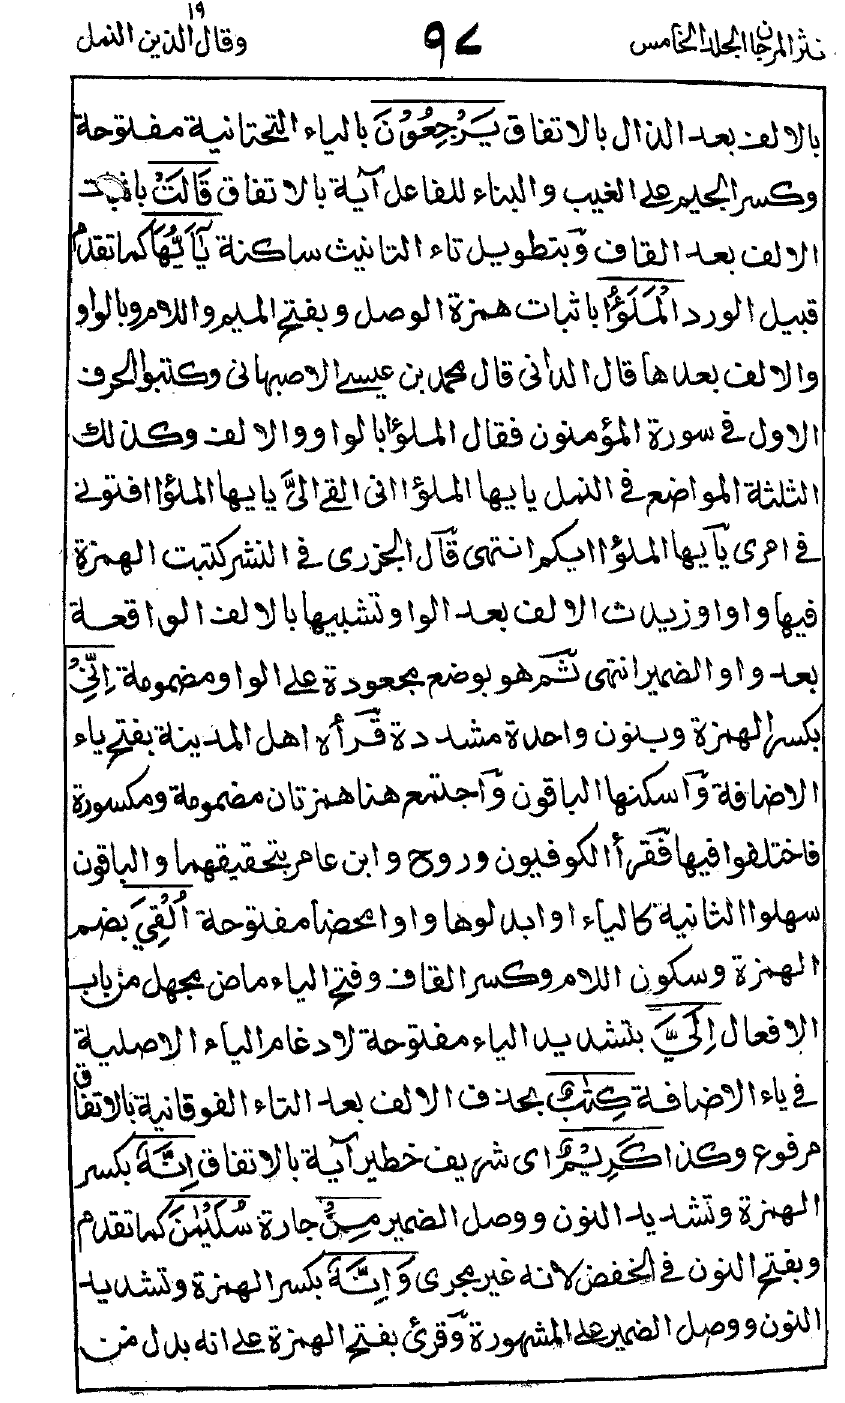 نثر المرجان الجلد الخامس ٩٧ وقال الذين ١٩ النمل
بالالف بعد الذال بالاتفاق يَرْجِعُوْنَ بالياء التحتانية مفتوحة
وكسر الجيم على الغيب والبناء للفاعل آية بالاتفاق قَالَتْ باثبات
الالف بعد القاف وبتطويل تاء التانيث ساكنة يٰٓاَيُّهَا كما تقدم
قبيل الورد الْمَلَؤُا باثبات همزة الوصل وبفتح الميم واللام وبالواو
والالف بعدها قال الدانى قال محمد بن عيسے الاصبهانى وكتبوا الحرف
الاول فے سورة المؤمنون فقال الملؤا بالواو والالف وكذلك
الثلثة المواضع فے النمل يايها الملؤا انى القے الىَّ يايها الملؤا افتونے
فے امرى يٓايها الملؤا ايكم انتهى قال الجزرى فے النشر كتبت الهمزة
فيها واوا وزيدت الالف بعد الواو تشبيها بالالف الواقعة
بعد واو الضمير انتهى ثم هو بوضع مجعودة على الواو مضمومة اِنِّىْ
بكسر الهمزة وبنون واحدة مشددة قرأه اهل المدينة بفتح ياء
الاضافة واسكنها الباقون واجتمع هنا همزتان مضمومة ومكسورة
فاختلفوا فيها فقرأ الكوفيون وروح وابن عامر بتحقيقهما والباقون
سهلوا الثانية كالياء او ابدلوها واوا محضا مفتوحة اُلْقِىَ بضم
الهمزة وسكون اللام وكسر القاف وفتح الياء ماض مجهل من باب
الافعال اِلَىَّ بتشديد الياء مفتوحة لادغام الياء الاصلية
فے ياء الاضافة كِتٰبٌ بحذف الالف بعد التاء الفوقانية بالاتفاق
مرفوع وكذا كَرِيْمٌ اى شريف خطير آية بالاتفاق اِنَّهٗ بكسر
الهمزة وتشديد النون ووصل الضمير مِنْ جارة سُلَيْمٰنَ كما تقدم
وبفتح النون فے الخفض لانه غير مجرى وَاِنَّهٗ بكسر الهمزة وتشديد
النون ووصل الضمير على المشهورة وقرئ بفتح الهمزة على انه بدل من